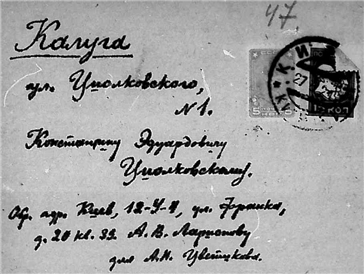 47.
Калуга
ул. Циолковского,
№1.
Константину Эдуардовичу
Циолковскому.
Обр. адр. Киев, 12-У-4, ул. Франка,
д. 20 кв. 33. А. В. Ларионову
для А. Н. Цветикова.
5 5